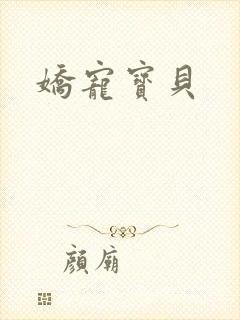 嬌寵寶貝
顏廟